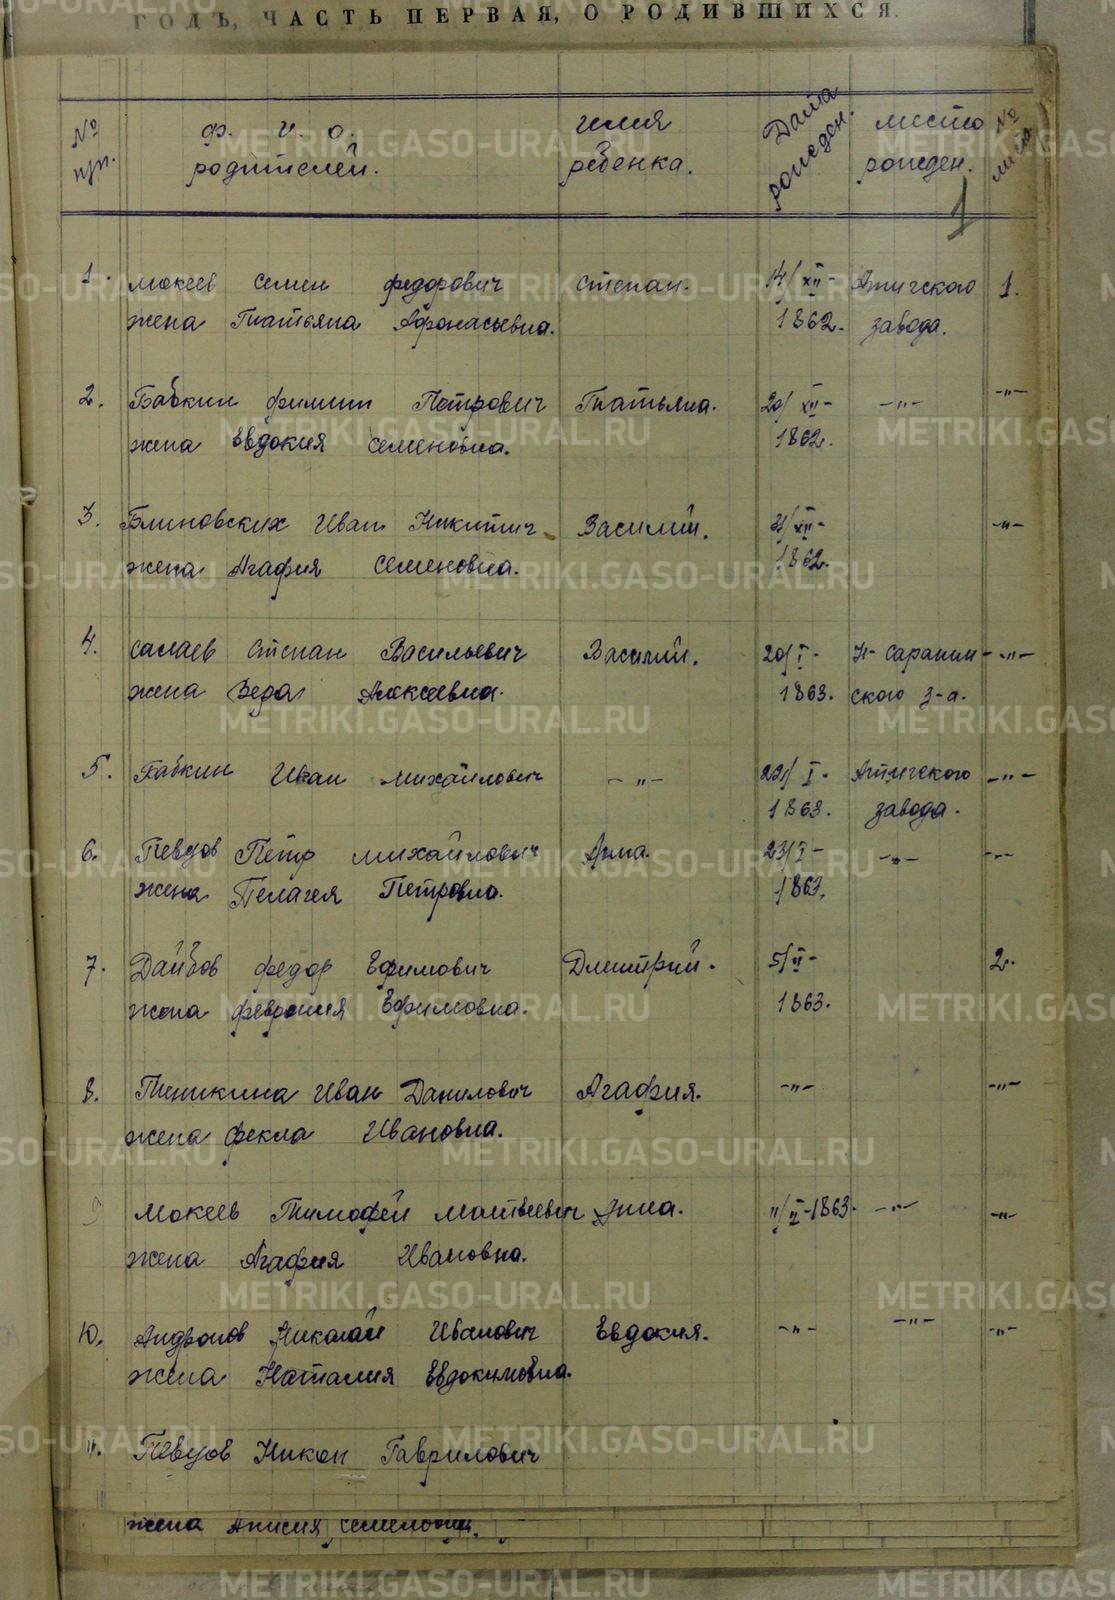 ГОДЪ, ЧАСТЬ ПЕРВАЯ, О РОДИВШИХСЯ.
№ пп. ф. и. о. родителей. имя ребенка. Дата рожден. место рожден. № листа
1
1. Мокеев Семен Федорович Степан. 14/XII- Атигского 1.
жена Татьяна Афонасьевна. 1862. завода.
2. Бабкин Филипп Петрович Татьяна. 20/XII- -"- -"-
жена Евдокия Семеновна. 1862.
3. Блиновских Иван Никитич Василий. /XII- -"-
жена Агафия Семеновна. 1862.
4. Салаев Степан Васильевич Василий. 20/I- Н-Саранин- -"-
жена Алексеевна. 1863. ского з-а.
5. Бабкин Иван Михайлович -"- 22/I- Атигского -"-
1863. завода.
6. Певцов Петр Михайлович Анна. 23/I- -"- -"-
жена Пелагея Петровна. 1863.
7. Дайбов Федор Ефимович Дмитрий. 5/II- 2.
жена Феврония Ефимовна. 1863.
8. Иван Данилович Агафия. -"- -"-
жена Фекла Ивановна.
9 Мокеев Тимофей Матвеевич Анна. 11/II-1863. -"- -"-
жена Агафия Ивановна.
10. Андронов Николай Иванович Евдокия. -"- -"- -"-
жена Наталия Евдокимовна.
11. Певцов Никон Гаврилович
жена Анисия Семеновна.
METRIKI.GASO-URAL.RU